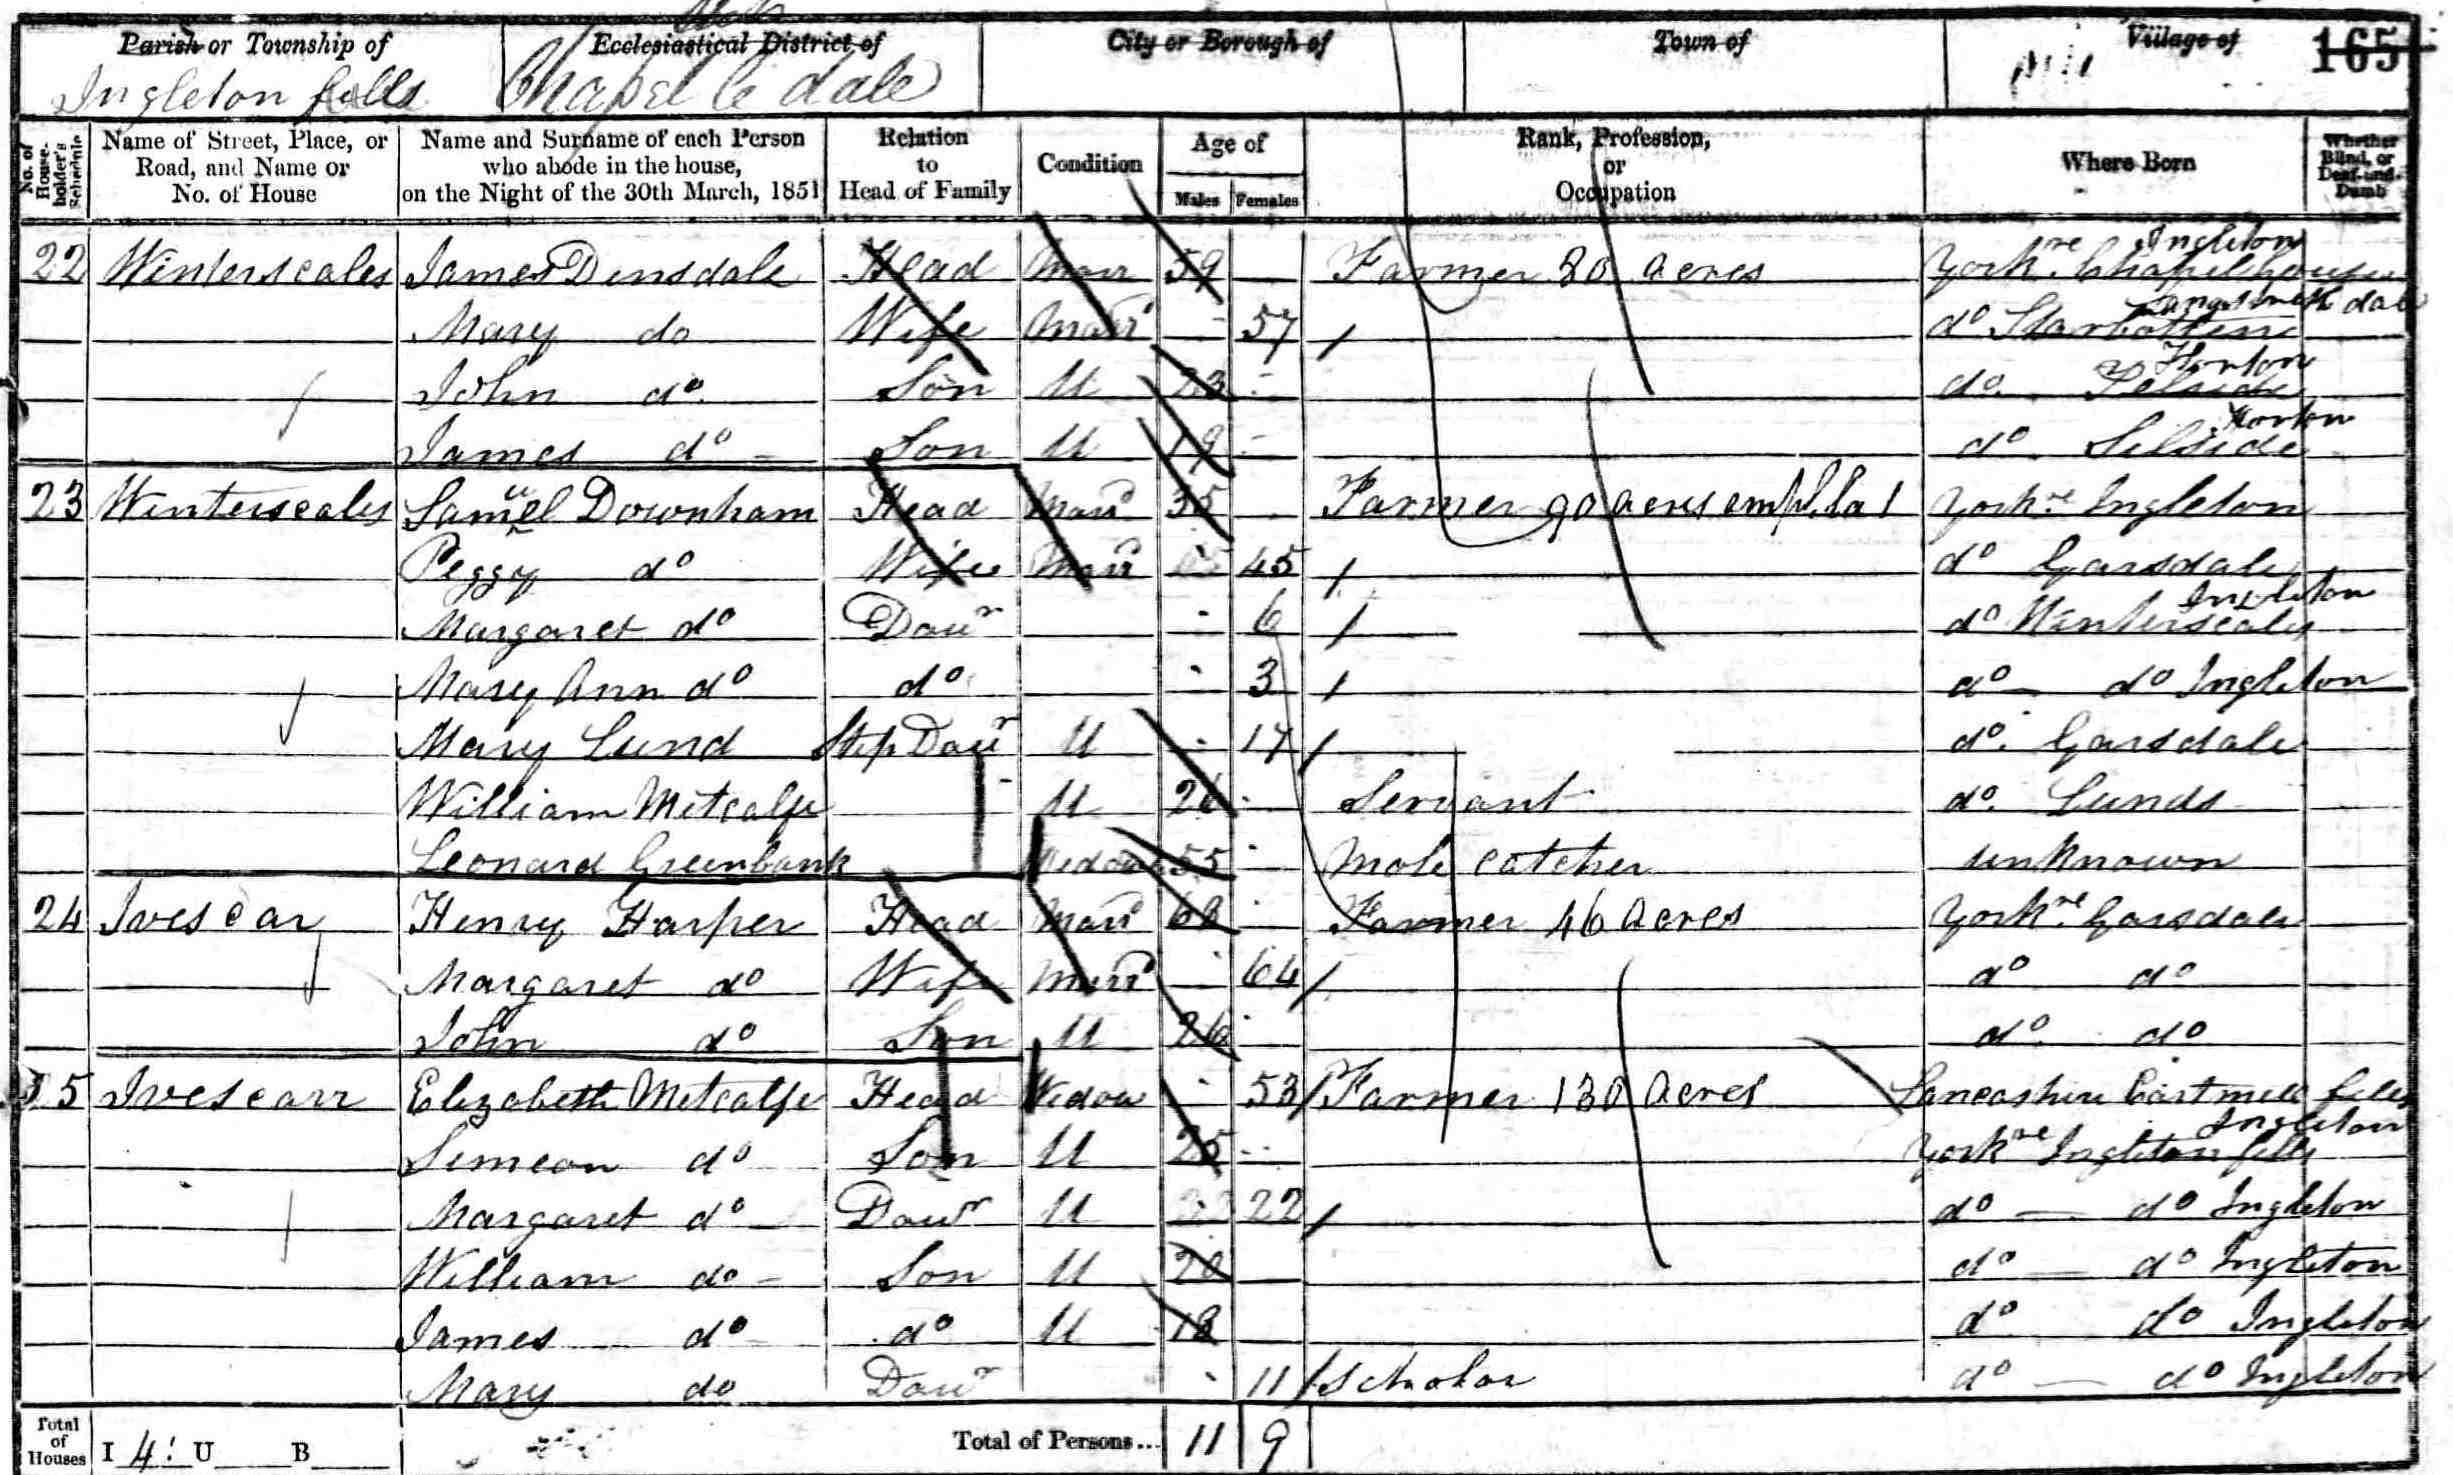 Parish or Township of Ecclesiastical District of City or Borough of Town of Village of 165
Ingleton fells Chapel le dale
No. of House-holder's Schedule Name of Street, Place, or Road, and Name or No. of House Name and Surname of each Person who abode in the house, on the Night of the 30th March, 1851 Relation to Head of Family Condition Age of Males Females Rank, Profession, or Occupation Where Born Whether Blind, or Deaf-and-Dumb
22 Winterscales James Dinsdale Head Marr 59 Farmer 80 acres Yorkre Chapelhouse Ingleton
Mary do Wife Marr 57 do Starbotten Langstroth dale
John do Son U 23 do Selside Horton
James do Son U 19 do Selside Horton
23 Winterscales Samuel Downham Head Marr 35 Farmer 90 acres emp. la 1 Yorkre Ingleton
Peggy do Wife Marr 45 do Garsdale
Margaret do Daur 6 do Winterscales Ingleton
Mary Ann do do 3 do do Ingleton
Mary Lund Step Daur U 17 do Garsdale
William Metcalfe U 26 Servant do Lunds
Leonard Greenbank Widower 55 Mole catcher unknown
24 Ivescar Henry Harper Head Marr 62 Farmer 46 acres Yorkre Garsdale
Margaret do Wife Marr 64 do do
John do Son U 26 do do
25 Ivescarr Elizabeth Metcalfe Head Widow 53 Farmer 130 acres Lancashire Cartmell fells
Simeon do Son U 25 Yorkre Ingleton fells Ingleton
Margaret do Daur U 22 do do Ingleton
William do Son U 20 do do Ingleton
James do do U 18 do do Ingleton
Mary do Daur 11 Scholar do do Ingleton
Total of Houses I 4 U B Total of Persons... 11 9